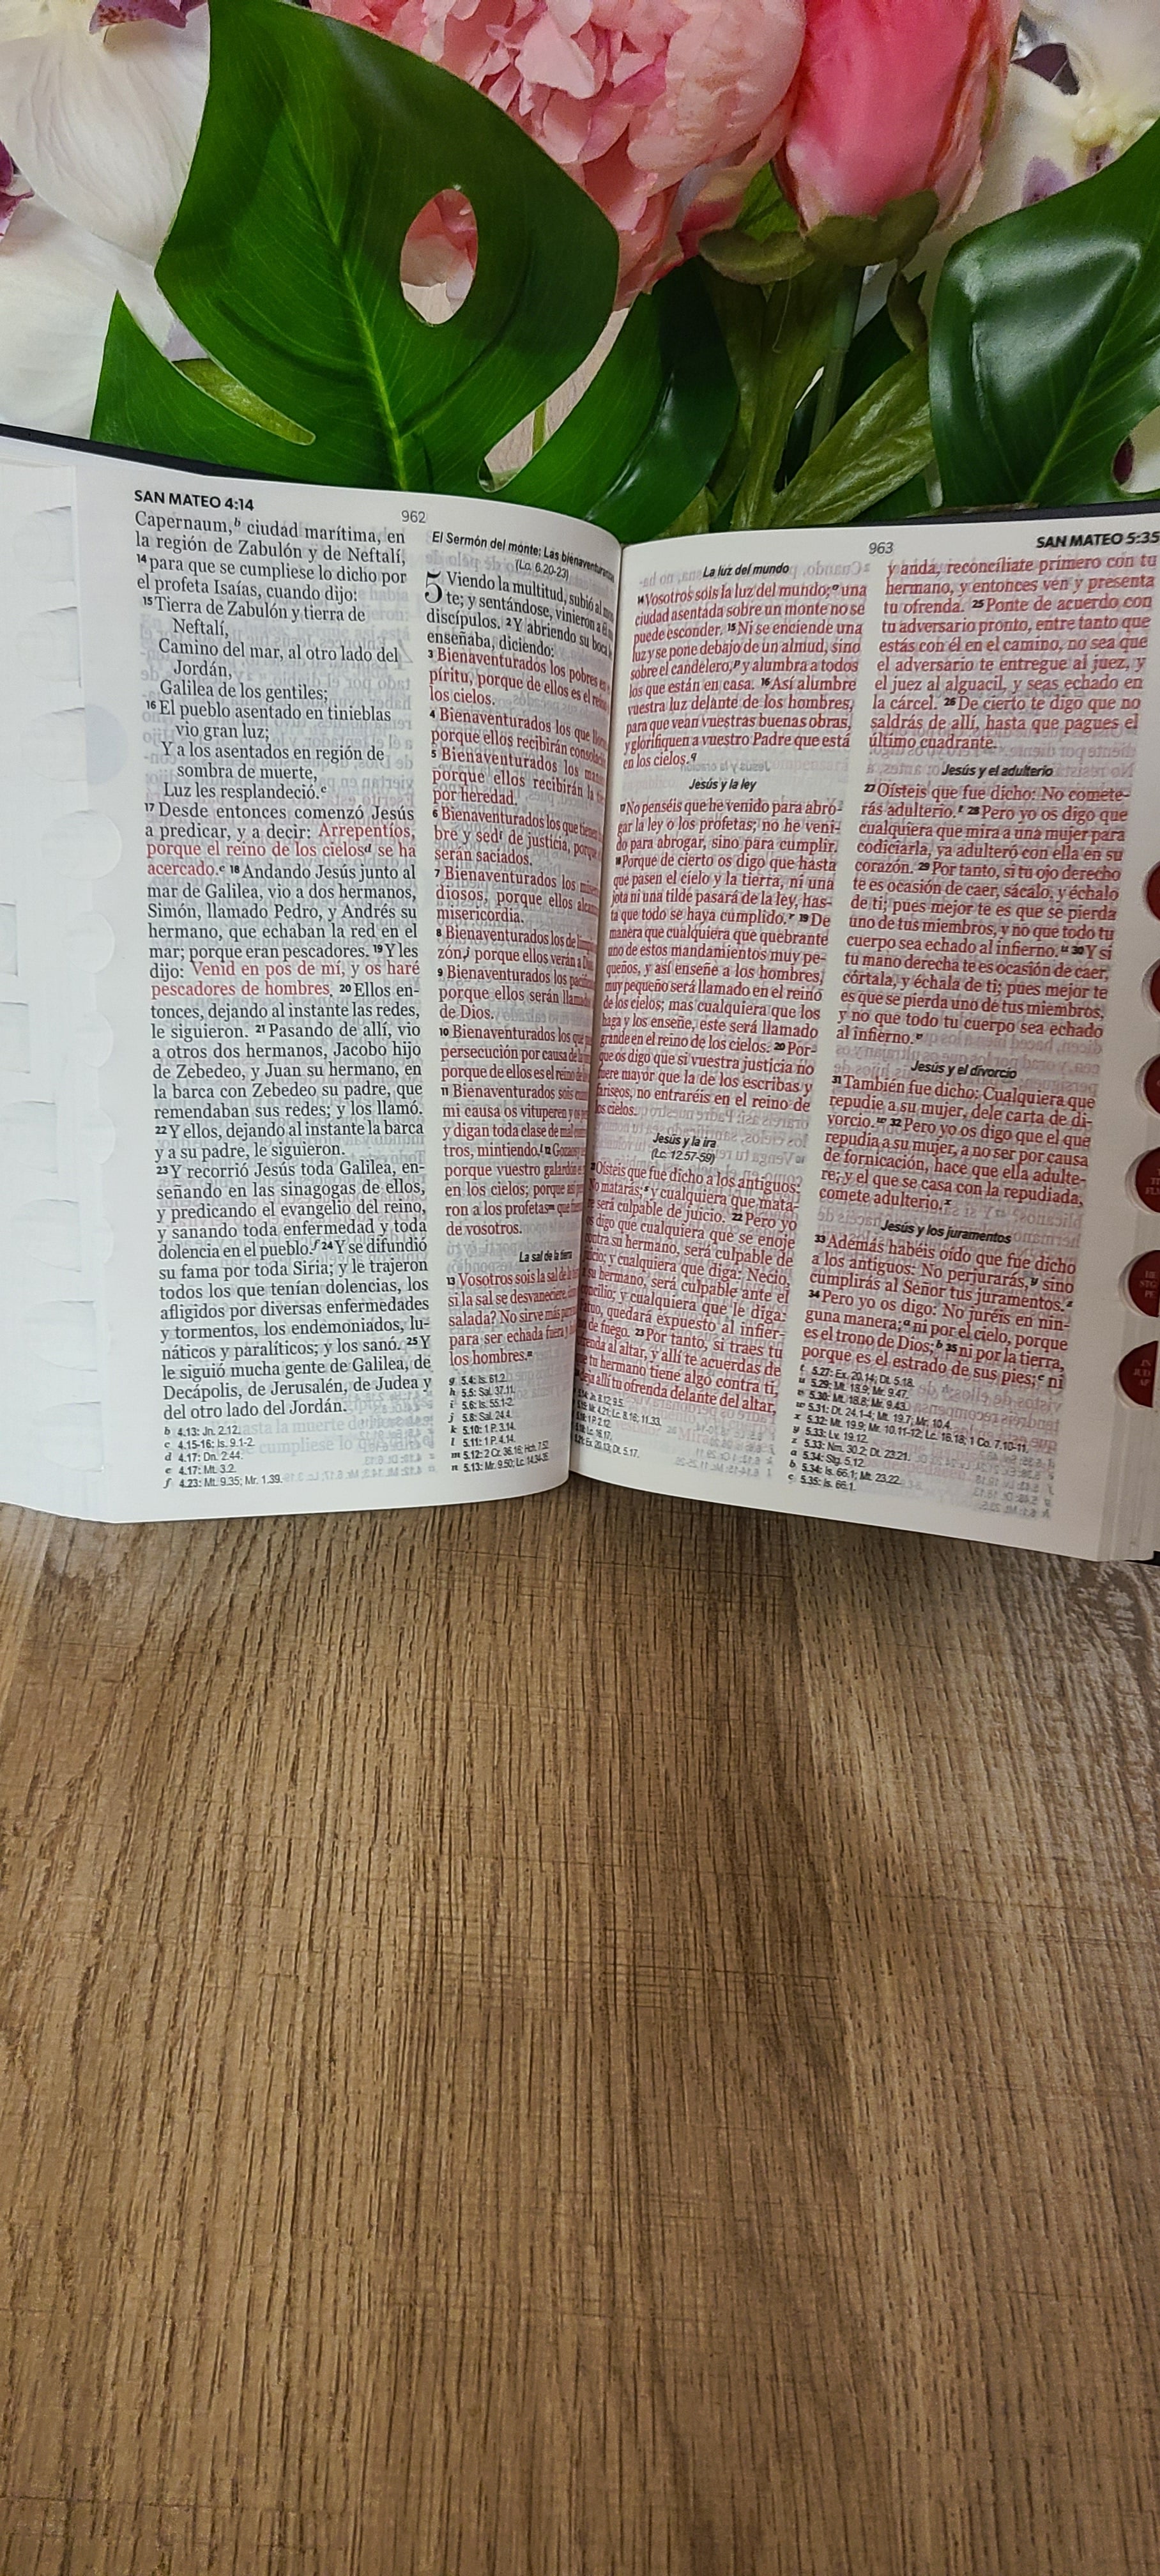 SAN MATEO 4:14
962
Capernaum,b ciudad marítima, en
la región de Zabulón y de Neftalí,
14 para que se cumpliese lo dicho por
el profeta Isaías, cuando dijo:
15 Tierra de Zabulón y tierra de
Neftalí,
Camino del mar, al otro lado del
Jordán,
Galilea de los gentiles;
16 El pueblo asentado en tinieblas
vio gran luz;
Y a los asentados en región de
sombra de muerte,
Luz les resplandeció.c
17 Desde entonces comenzó Jesús
a predicar, y a decir: Arrepentíos,
porque el reino de los cielosd se ha
acercado.e 18 Andando Jesús junto al
mar de Galilea, vio a dos hermanos,
Simón, llamado Pedro, y Andrés su
hermano, que echaban la red en el
mar; porque eran pescadores. 19 Y les
dijo: Venid en pos de mí, y os haré
pescadores de hombres. 20 Ellos en-
tonces, dejando al instante las redes,
le siguieron. 21 Pasando de allí, vio
a otros dos hermanos, Jacobo hijo
de Zebedeo, y Juan su hermano, en
la barca con Zebedeo su padre, que
remendaban sus redes; y los llamó.
22 Y ellos, dejando al instante la barca
y a su padre, le siguieron.
23 Y recorrió Jesús toda Galilea, en-
señando en las sinagogas de ellos,
y predicando el evangelio del reino,
y sanando toda enfermedad y toda
dolencia en el pueblo.f 24 Y se difundió
su fama por toda Siria; y le trajeron
todos los que tenían dolencias, los
afligidos por diversas enfermedades
y tormentos, los endemoniados, lu-
náticos y paralíticos; y los sanó. 25 Y
le siguió mucha gente de Galilea, de
Decápolis, de Jerusalén, de Judea y
del otro lado del Jordán.
b 4.13: Jn. 2.12.
c 4.15-16: Is. 9.1-2.
d 4.17: Dn. 2.44.
e 4.17: Mt. 3.2.
f 4.23: Mt. 9.35; Mr. 1.39.
El Sermón del monte: Las bienaventuranzas
(Lc. 6.20-23)
5 Viendo la multitud, subió al
te; y sentándose, vinieron a
discípulos. 2 Y abriendo su boca
enseñaba, diciendo:
3 Bienaventurados los pobres en
píritu, porque de ellos es el
los cielos.
4 Bienaventurados los que
porque ellos recibirán
5 Bienaventurados los
porque ellos recibirán la
por heredad.
6 Bienaventurados los que
bre y sedi de justicia, porque
serán saciados.
7 Bienaventurados los
diosos, porque ellos
misericordia.
8 Bienaventurados los de
zón,j porque ellos verán a
9 Bienaventurados los
porque ellos serán
de Dios.
10 Bienaventurados los que
persecución por causa de
porque de ellos es el reino de
11 Bienaventurados sois
mi causa os vituperen y os
y digan toda clase de mal
tros, mintiendo.l 12
porque vuestro galardón
en los cielos; porque así
ron a los profetasm que
de vosotros.
La sal de la tierra
13 Vosotros sois la sal de la
si la sal se desvaneciere,
salada? No sirve más
para ser echada fuera y
los hombres.n
g 5.4: Is. 61.2.
h 5.5: Sal. 37.11.
i 5.6: Is. 55.1-2.
j 5.8: Sal. 24.4.
k 5.10: 1 P. 3.14.
l 5.11: 1 P. 4.14.
m 5.12: 2 Cr. 36.16; Hch. 7.52.
n 5.13: Mr. 9.50; Lc. 14.34-35.
963
La luz del mundo
14 Vosotros sois la luz del mundo;o una
ciudad asentada sobre un monte no se
puede esconder. 15 Ni se enciende una
luz y se pone debajo de un almud, sino
sobre el candelero,p y alumbra a todos
los que están en casa. 16 Así alumbre
vuestra luz delante de los hombres,
para que vean vuestras buenas obras,
y glorifiquen a vuestro Padre que está
en los cielos.q
Jesús y la ley
17 No penséis que he venido para abro-
gar la ley o los profetas; no he veni-
do para abrogar, sino para cumplir.
18 Porque de cierto os digo que hasta
que pasen el cielo y la tierra, ni una
jota ni una tilde pasará de la ley, has-
ta que todo se haya cumplido.r 19 De
manera que cualquiera que quebrante
uno de estos mandamientos muy pe-
queños, y así enseñe a los hombres,
muy pequeño será llamado en el reino
de los cielos; mas cualquiera que los
haga y los enseñe, este será llamado
grande en el reino de los cielos. 20 Por-
que os digo que si vuestra justicia no
fuere mayor que la de los escribas y
fariseos, no entraréis en el reino de
los cielos.
Jesús y la ira
(Lc. 12.57-59)
Oísteis que fue dicho a los antiguos:
No matarás;s y cualquiera que mata-
re será culpable de juicio. 22 Pero yo
os digo que cualquiera que se enoje
contra su hermano, será culpable de
juicio; y cualquiera que diga: Necio,
a su hermano, será culpable ante el
concilio; y cualquiera que le diga:
Fatuo, quedará expuesto al infier-
de fuego. 23 Por tanto, si traes tu
ofrenda al altar, y allí te acuerdas de
que tu hermano tiene algo contra ti,
deja allí tu ofrenda delante del altar,
Lc. 8.16; 11.33.
1 P. 2.12.
Lc. 16.17.
Ex. 20.13; Dt. 5.17.
SAN MATEO 5:35
y anda, reconcíliate primero con tu
hermano, y entonces ven y presenta
tu ofrenda. 25 Ponte de acuerdo con
tu adversario pronto, entre tanto que
estás con él en el camino, no sea que
el adversario te entregue al juez, y
el juez al alguacil, y seas echado en
la cárcel. 26 De cierto te digo que no
saldrás de allí, hasta que pagues el
último cuadrante.
Jesús y el adulterio
27 Oísteis que fue dicho: No comete-
rás adulterio.t 28 Pero yo os digo que
cualquiera que mira a una mujer para
codiciarla, ya adulteró con ella en su
corazón. 29 Por tanto, si tu ojo derecho
te es ocasión de caer, sácalo, y échalo
de ti; pues mejor te es que se pierda
uno de tus miembros, y no que todo tu
cuerpo sea echado al infierno.u 30 Y si
tu mano derecha te es ocasión de caer,
córtala, y échala de ti; pues mejor te
es que se pierda uno de tus miembros,
y no que todo tu cuerpo sea echado
al infierno.v
Jesús y el divorcio
31 También fue dicho: Cualquiera que
repudie a su mujer, dele carta de di-
vorcio.w 32 Pero yo os digo que el que
repudia a su mujer, a no ser por causa
de fornicación, hace que ella adulte-
re; y el que se casa con la repudiada,
comete adulterio.x
Jesús y los juramentos
33 Además habéis oído que fue dicho
a los antiguos: No perjurarás,y sino
cumplirás al Señor tus juramentos.z
34 Pero yo os digo: No juréis en nin-
guna manera;a ni por el cielo, porque
es el trono de Dios;b 35 ni por la tierra,
porque es el estrado de sus pies;c ni
t 5.27: Ex. 20.14; Dt. 5.18.
u 5.29: Mt. 18.9; Mr. 9.47.
v 5.30: Mt. 18.8; Mr. 9.43.
w 5.31: Dt. 24.1-4; Mt. 19.7; Mr. 10.4.
x 5.32: Mt. 19.9; Mr. 10.11-12; Lc. 16.18; 1 Co. 7.10-11.
y 5.33: Lv. 19.12.
z 5.33: Nm. 30.2; Dt. 23.21.
a 5.34: Stg. 5.12.
b 5.34: Is. 66.1; Mt. 23.22.
c 5.35: Is. 66.1.